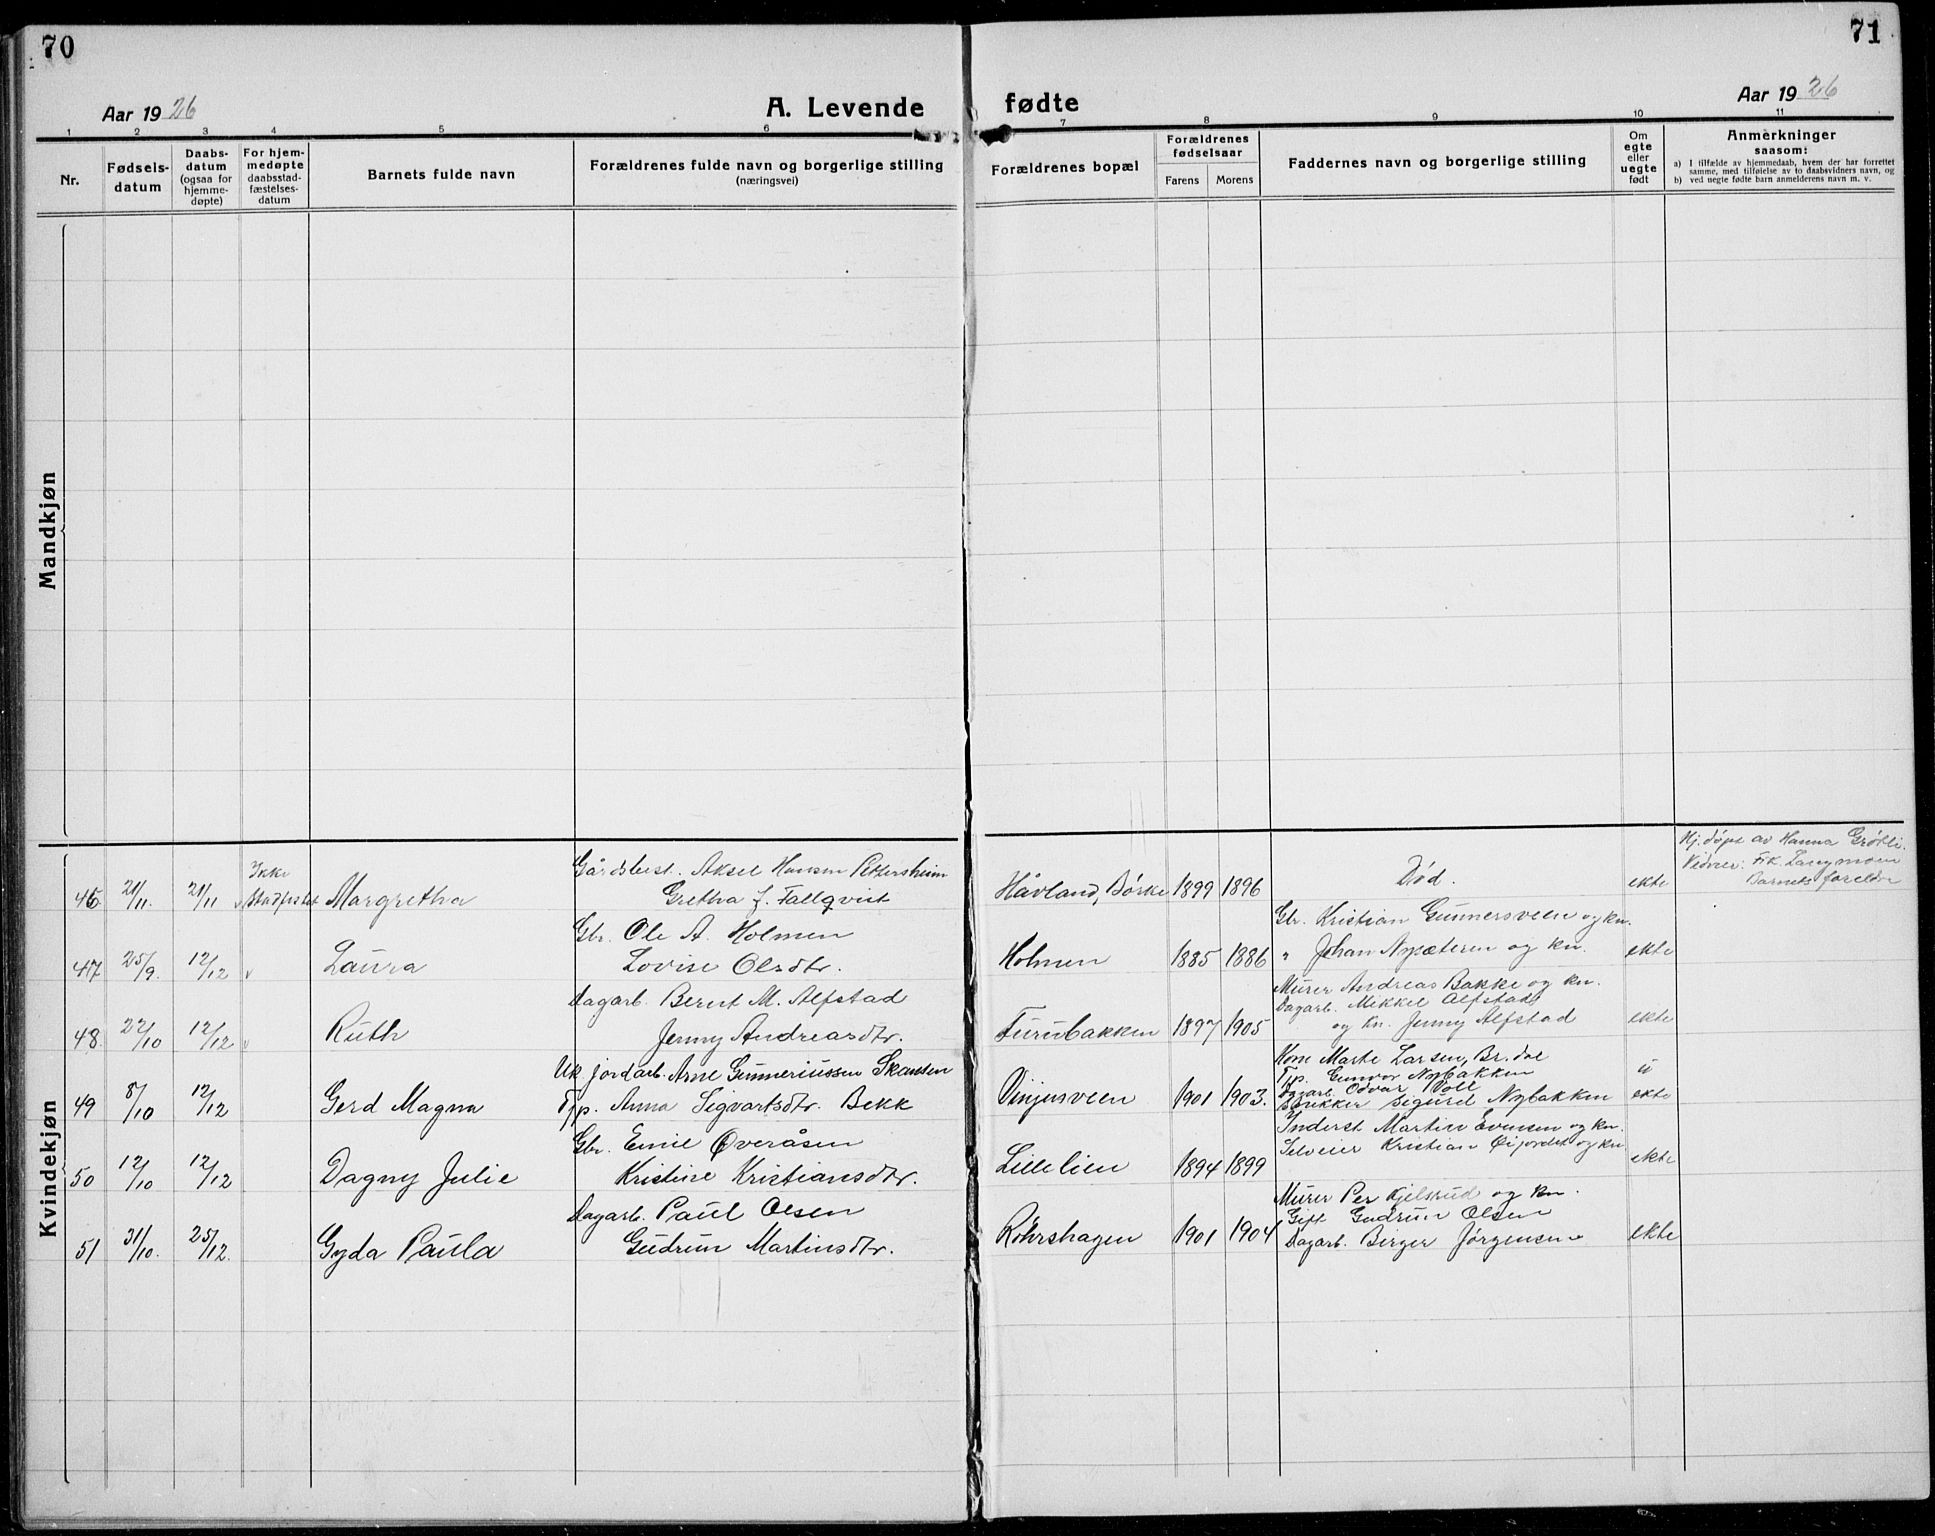 70
Aar 1926
A. Levende
1 2 3 4 5 6
Nr.
Fødsels-
datum
Daabs-
datum
(ogsaa for
hjemme-
døpte)
For hjem-
medøpte
daabsstad-
fæstelses-
datum
Barnets fulde navn
Forældrenes fulde navn og borgerlige stilling
(næringsvei)
Mandkjøn
Kvindekjøn
Ikke
Gårdsbest. Aksel Hansen Pettersheim
46 21/11. 21/11 Stadfestet Margretha Gretha J. Fallqvist
Gbr. Ole A. Holmen
47 25/9. 12/12 Laura Lovise Olsdtr.
Dagarb. Bernt M. Alfstad
48 22/10 12/12 Ruth Jenny Andreasdtr.
Uk. jordarb. Arne Gunneriussen Skansen
49 8/10 12/12 Gerd Magna Tjp. Anna Sigvartsdtr. Bekk
Gbr. Emil Øveråsen
50 12/10 12/12 Dagny Julie Kristine Kristiansdtr.
Dagarb. Paul Olsen
51 31/10. 25/12. Gyda Paula Gudrun Martinsdtr.
71
fødte
Aar 1926
7 8 9 10 11
Forældrenes bopæl
Forældrenes
fødselsaar
Farens Morens
Faddernes navn og borgerlige stilling
Om
egte
eller
uegte
født
Anmerkninger
saasom:
a) I tilfælde av hjemmedaab, hvem der har forrettet
samme, med tilføielse av to daabsvidners navn, og
b) ved uegte fødte barn anmelderens navn m. v.
Hj. døpt av Hanna Grøtli.
Vidner: Frk. Langmoen
Barnets foreldre
Håvland, Børke 1899 1896 Død. ekte
Gbr. Kristian Gunnersveen og kn.
Holmen 1885 1886 " Johan Nysæteren og kn. ekte
Murer Andreas Bakke og kn.
Dagarb. Mikkel Alfstad
Furubakken 1897 1905 og kn. Jenny Alfstad ekte
Kone Marte Larsen, Br.dal
Tjp. Gunvor Nybakken
Dagarb. Odvar Voll
Vinjusveen 1901 1903. Snikker Sigurd Nybakken u
ekte
Inderst Martin Evensen og kn.
Selveier Kristian Øijordet og kn
Lillelien 1894 1899 ekte
Murer Per Kjelsrud og kn.
Gift Gudrun Olsen
Röhrshagen 1901 1904 Dagarb. Birger Jørgensen ekte